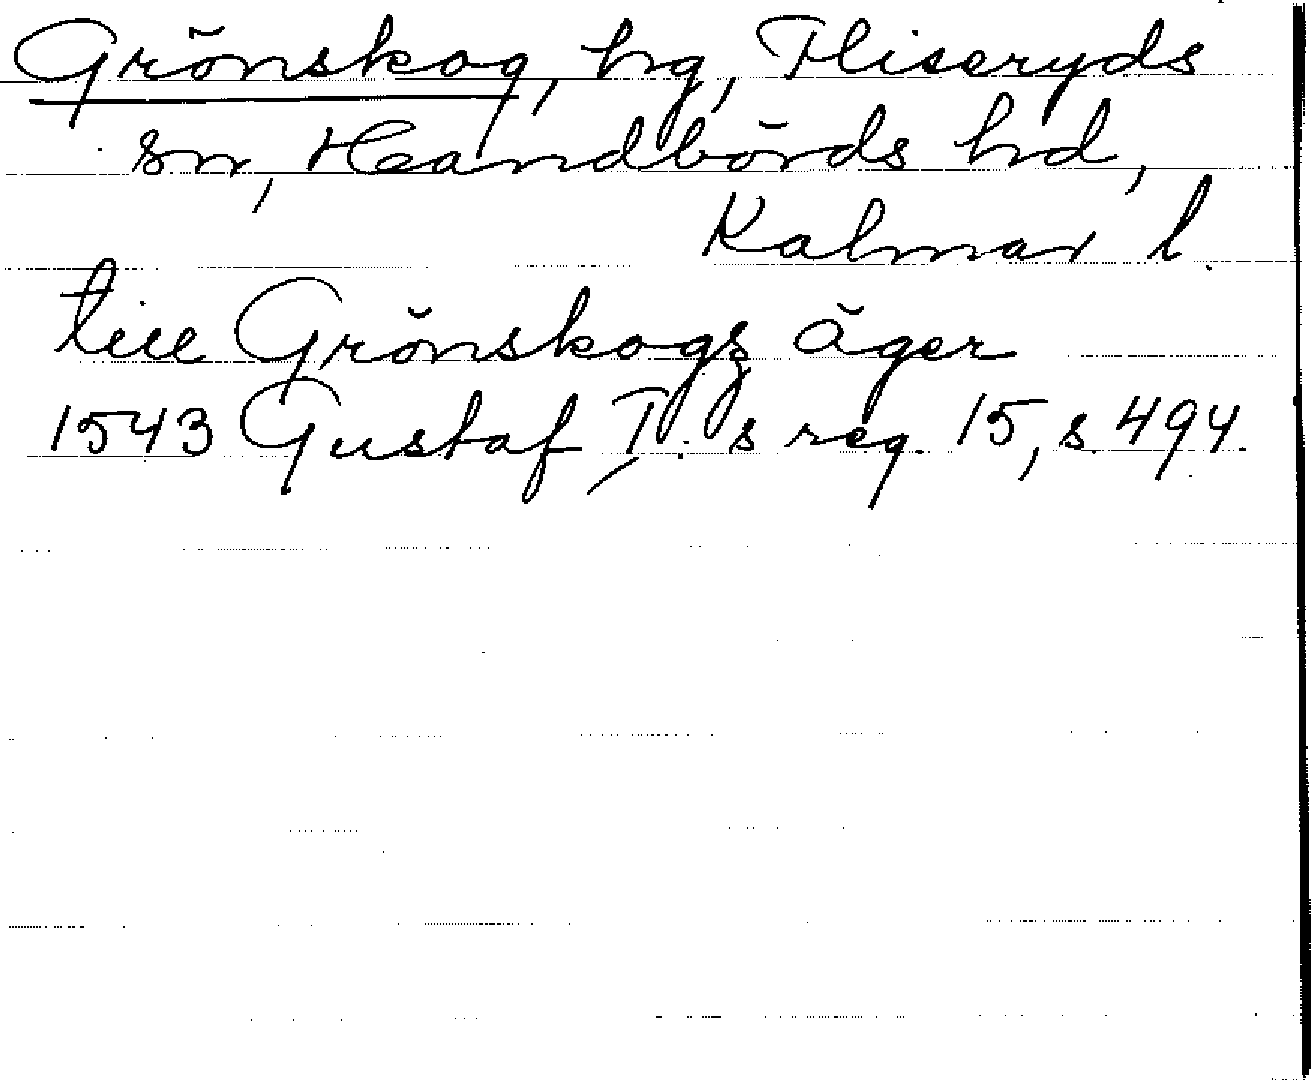 Grönskog, hg, Fliseryds
sn, Handbörds hd,
Kalmar l.
till Grönskogs äger
1543 Gustaf I.s reg. 15, s 494.